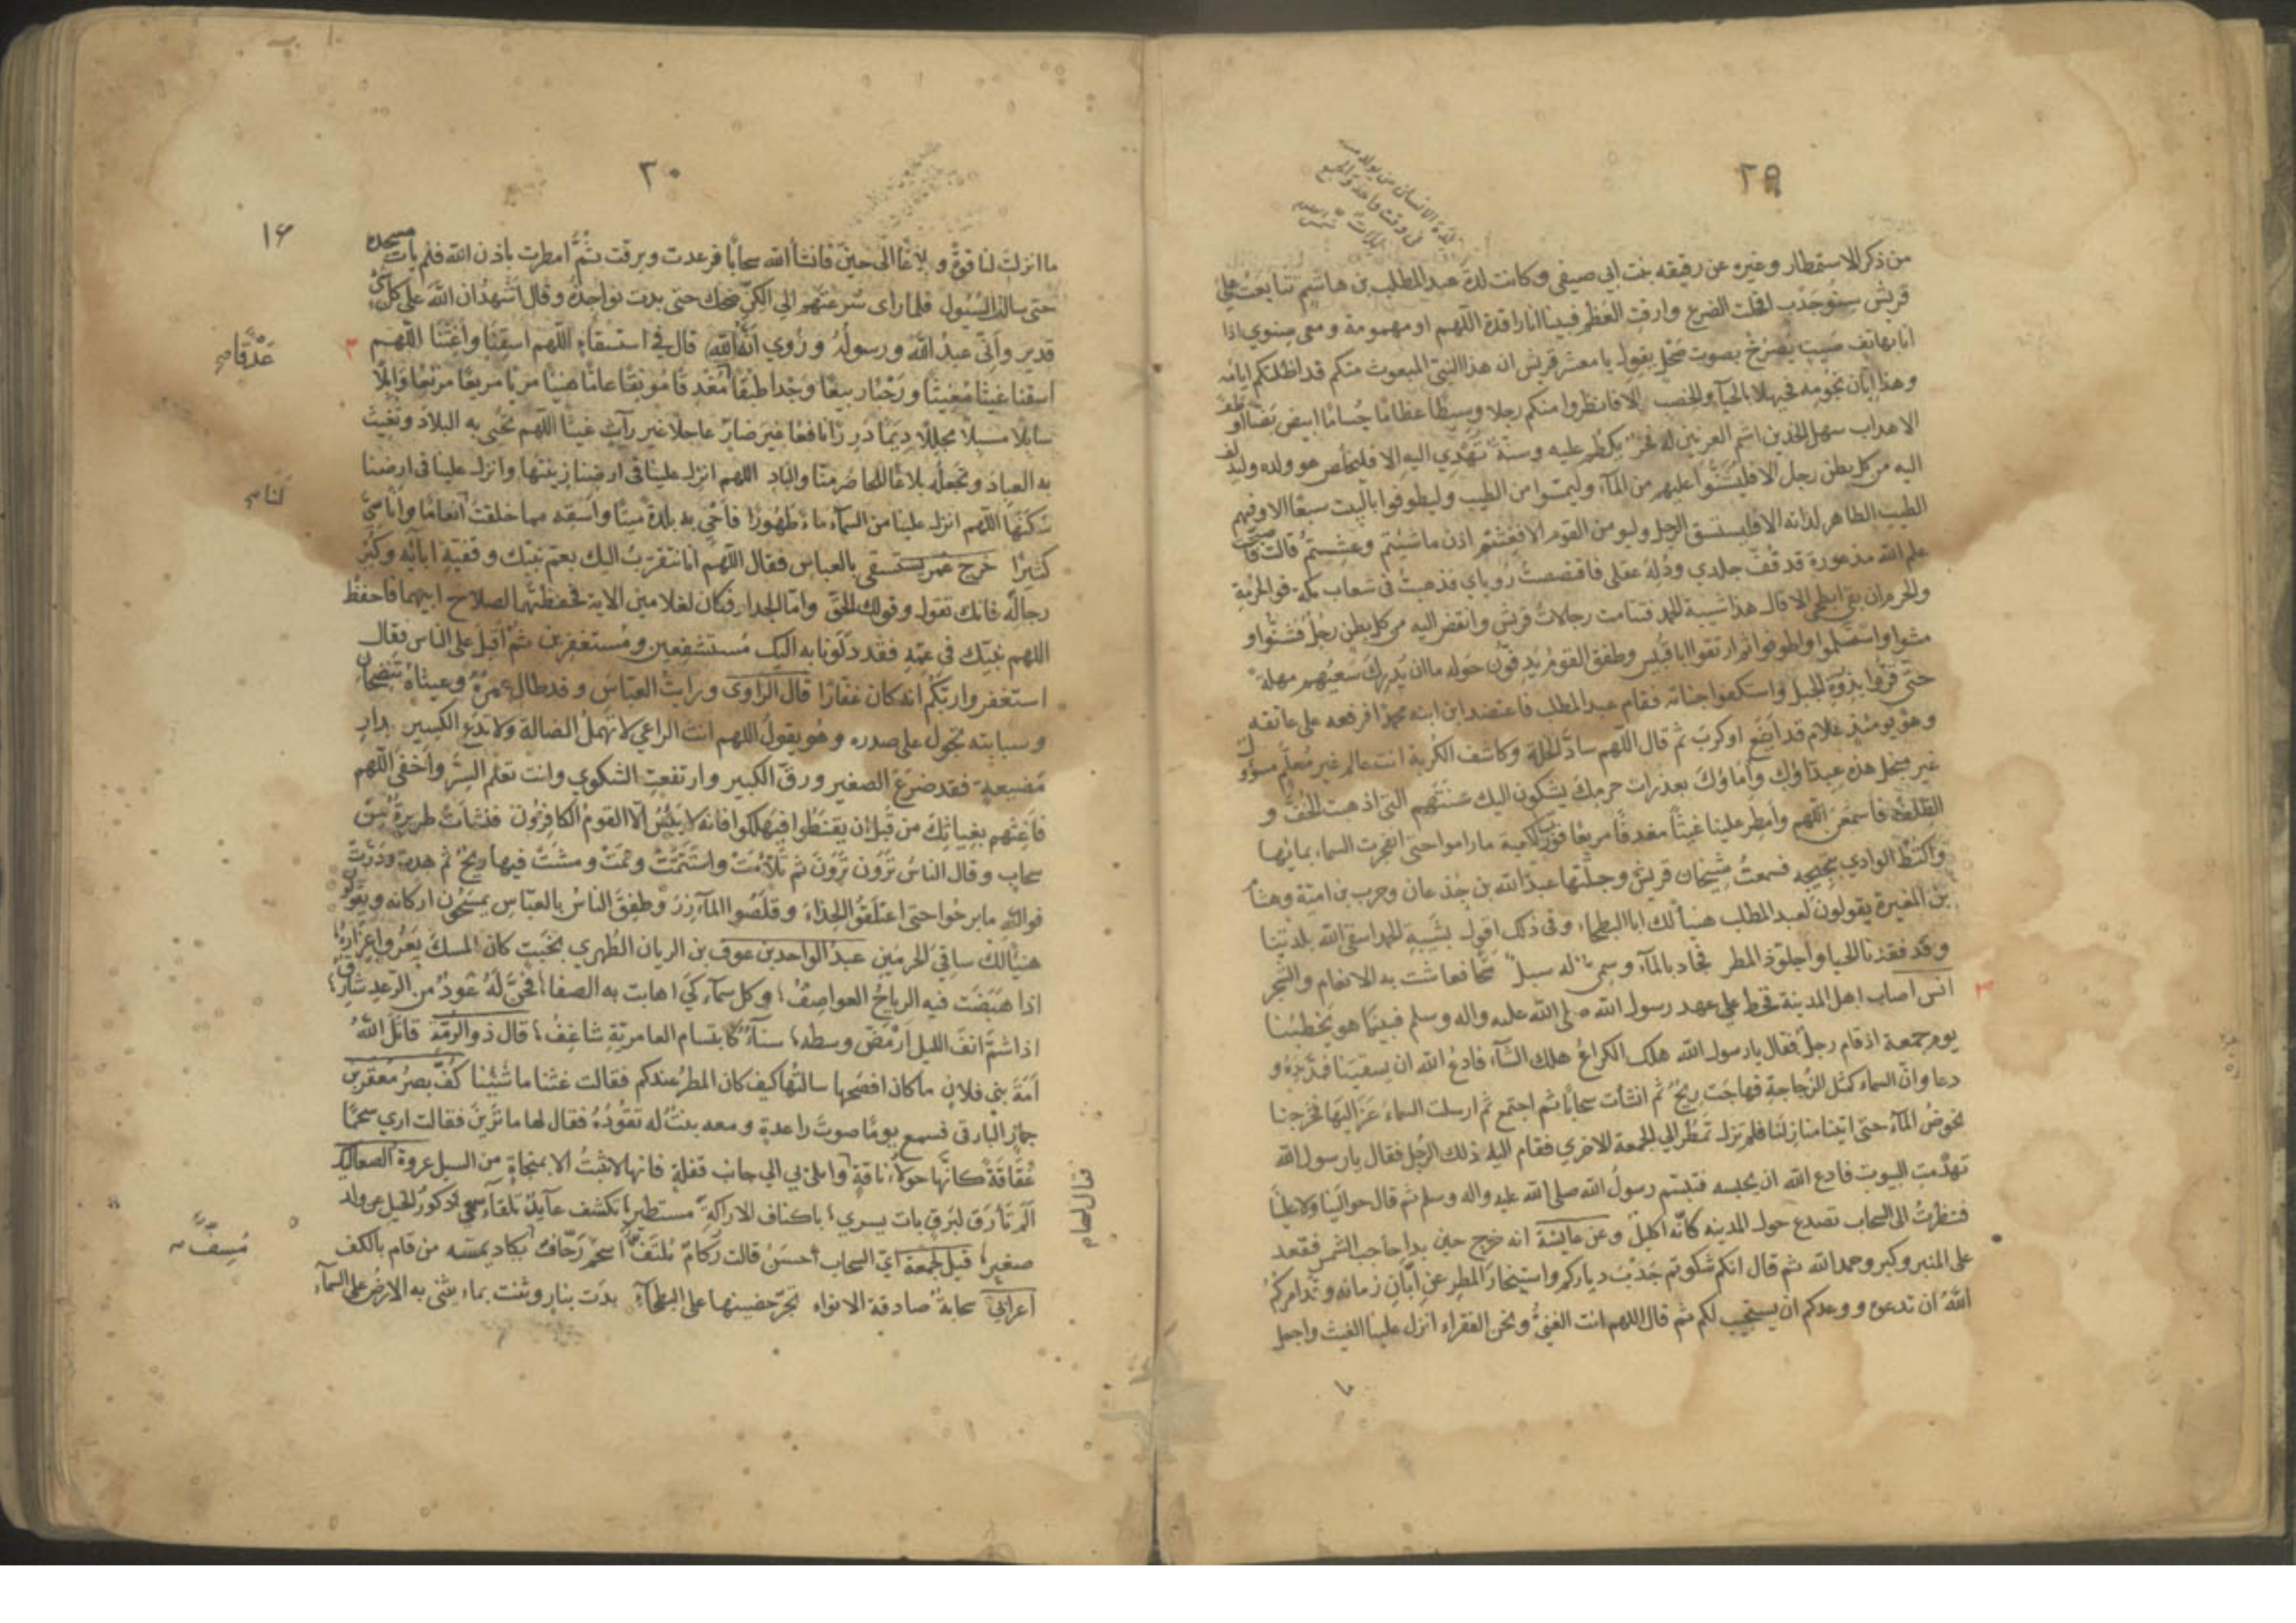 ٢٩
لدة الانسان من يولد معه
في وقت واحد والجمع
لدات
من ذكر الاستمطار وغيره عن رقيقه بنت ابي صيفي وكانت لدة عبد المطلب بن هاشم تتابعت علي
قريش سنو جدب اقحلت الضرع وارقت العظم فبينا انا راقدة اللهم او مهمومة ومعي صنوي اذا
انا بهاتف صيت يصرخ بصوت صحل يقول يا معشر قريش ان هذا النبي المبعوث منكم قد اظلتكم ايامه
وهذا ابان نجومه فحيهلا بالحيا والخصب الا فانظروا منكم رجلا وسيطا عظاما جساما ابيض بضا اوطف
الاهداب سهل الخدين اشم العرنين له فخر يكظم عليه وسنة تهدي اليه الا فليخلص هو وولده وليدلف
اليه من كل بطن رجل الا فليشنوا عليهم من المآء وليمسوا من الطيب وليطوفوا بالبيت سبعا الا وفيهم
الطيب الطاهر لذاته الا فليستسق الرجل وليومن القوم الا فغثتم اذن ما شئتم وعشتم قالت فاصبحت
علم الله مذعورة قد قف جلدي ودله عقلي فاقتصصت رؤياي فذهبت في شعاب مكة فوالحرمة
والحرم ان بقي ابطحي الا قال هذا شيبة الحمد فتنامت رجالات قريش وانقض اليه من كل بطن رجل فشنوا و
مشوا واستلموا واطوفوا ثم ارتقوا ابا قبيس وطفق القوم يدفون حوله ما ان يدرك سعيهم مهلة
حتى قروا بذروة الجبل واستكفوا جنابيه فقام عبد المطلب فاعتضد ابن ابنه محمدا فرفعه على عاتقه
وهو يومئذ غلام قد ايفع او كرب ثم قال اللهم ساد الخلة وكاشف الكربة انت عالم غير معلم مسؤول
غير مبخل هذه عبداؤك واماؤك بعذرات حرمك يشكون اليك سنتهم التي اذهبت الخف و
الظلف فاسمعن اللهم وامطر علينا غيثا مغدقا مريعا فورب الكعبة ما راموا حتى انفجرت السماء بمائها
واكتظ الوادي بثجيجه فسمعت شيخان قريش وجلتها عبد الله بن جذعان وحرب بن امية وهشام
بن المغيرة يقولون لعبد المطلب هنيأ لك ابا البطحاء وفى ذلك اقول بشيبة الحمد اسقى الله بلدتنا
وقد فقدنا الحيا واجلوذ المطر فجاد بالمآء وسمي له سبل سحا فعاشت به الانعام والشجر
انس اصاب اهل المدينة قحط علي عهد رسول الله صلى الله عليه واله وسلم فبينما هو يخطبنا
يوم جمعة اذ قام رجل فقال يا رسول الله هلك الكراع هلك الشآء فادع الله ان يسقينا فمد يده و
دعا وان السماء كمثل الزجاجة فهاجت ريح ثم انشأت سحابا ثم اجتمع ثم ارسلت السماء عزاليها فخرجنا
نخوض المآء حتى اتينا منازلنا فلم تزل تمطر الي الجمعة الاخري فقام اليه ذلك الرجل فقال يا رسول الله
تهدمت البيوت فادع الله ان يحبسه فتبسم رسول الله صلى الله عليه واله وسلم ثم قال حوالينا ولا علينا
فنظرت الى السحاب تصدع حول المدينه كانه اكليل وعن عايشة انه خرج حين بدا حاجب الشمس فقعد
على المنبر وكبر وحمد الله ثم قال انكم شكوتم جدب دياركم واستيخار المطر عن ابان زمانه وقد امركم
الله ان تدعوه ووعدكم ان يستجيب لكم ثم قال اللهم انت الغني ونحن الفقراء انزل علينا الغيث واجعل
٣٠
١٦
ما انزلت لنا قوة وبلاغا الى حين فانشأ الله سحابا فرعدت وبرقت ثم امطرت باذن الله فلم يأت مسجده
حتى سالت السيول فلما راى سرعتهم الي الكن ضحك حتى بدت نواجذه وقال اشهد ان الله على كل شئ
قدير واني عبد الله ورسوله وروي انه قال في استسقاء اللهم اسقنا واغثنا اللهم
اسقنا غيثا مغيثا ورحبا ربيعا وجدا طبقا مغدقا مونقا عاما هنيئا مريا مريعا مرتعا وابلا
سابلا مسبلا مجللا ديما دررا نافعا غير ضار عاجلا غير رايث غيثا اللهم تحيي به البلاد وتغيث
به العباد وتجعله بلاغا للحاضر منا والباد اللهم انزل علينا في ارضنا زينتها وانزل علينا في ارضنا
سكنها اللهم انزل علينا من السمآء ماء طهورا فاحي به بلدة ميتا واسقه مما خلقت انعاما واناسي
كثيرا خرج عمر يستسقي بالعباس فقال اللهم انا نتقرب اليك بعم نبيك وقفية ابائه وكبر
رجاله فانك تقول وقولك الحق واما الجدار فكان لغلامين الاية فحفظتهما لصلاح ابيهما فاحفظ
اللهم نبيك في عمه فقد دلونا به اليك مستشفعين ومستغفرين ثم اقبل على الناس فقال
استغفروا ربكم انه كان غفارا قال الراوي ورايت العباس وقد طال عمره وعيناه تنضحان
وسبابته تجول على صدره وهو يقول اللهم انت الراعي لا تهمل الضالة ولا تدع الكسير بدار
مضيعة فقد ضرع الصغير ورق الكبير وارتفعت الشكوي وانت تعلم السر واخفى اللهم
فاغثهم بغياثك من قبل ان يقنطوا فيهلكوا فانه لا ييئس الا القوم الكافرون فنشأت طريرة من
سحاب وقال الناس ترون ترون ثم تلامت واستتمت ومشت فيها ريح ثم هدت ودرت
فوالله ما برحوا حتى اعتلقوا الحذاء وقلصوا المآزر وطفق الناس بالعباس يمسحون اركانه ويقولون
هنيئا لك ساقي الحرمين عبد الواحد بن عوف بن الريان الطهري
اذا هبضت فيه الرياح العواصف وكل سمآء
اذا شم انف الليل ارمض وسطه سنآء كابتسام العامرية شاغف قال ذو الرمة قاتل الله
امة بني فلان ما كان افصحها سالتها كيف كان المطر عندكم فقالت غثنا ما شئنا كف بصر معقر بن
حمار البارقي فسمع يوما صوت راعدة ومعه بنت له تقوده فقال لها ما ترين فقالت اري سحما
عقاقة كانها حولاء ناقة وائلي بي الي جانب قفلة فانها لا تنبت الا بمنجاة من السيل عروة الصعاليك
الم تأرق لبرق بات يسري باكناف الاراكة مستطير تكشف عايذ بلقآء تنفي ذكور الخيل عن ولد
صغير قيل لجمعة اي السحاب احسن قالت ركام ملتف اسحم رحاف يكاد يمسه من قام بالكف
اعرابي سحابة صادقة الانواء تجر حضنيها على البطحآء بدت بنار وثنت بماء يثني به الارض على السمآء
غدقا صح
لنا صح
مسف صح